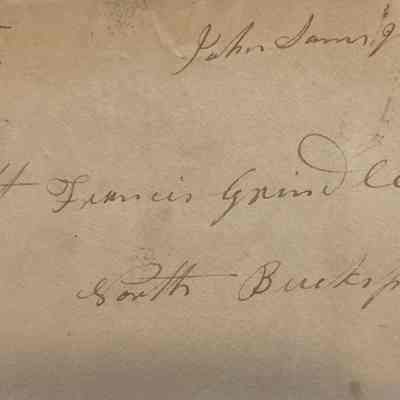 John
Francis Grindle
North Bucksp